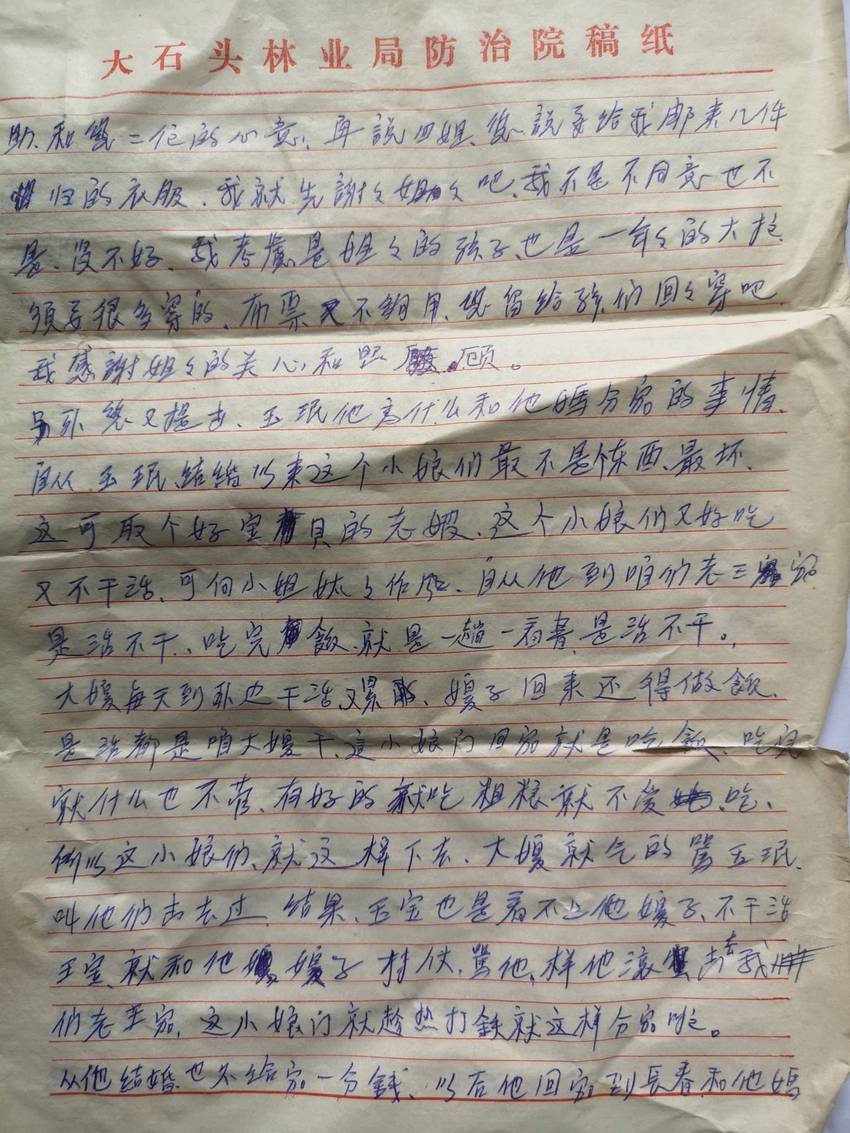 大石头林业局防治院稿纸
助.和您二位的心意.再說四姐.您說要给我邮来几件
归的衣服.我就先謝々姐々吧.我不是不同意也不
是.没不好.我考虑是姐々的孩子.也是一年々的大拉.
須要很多穿的.布票又不夠用.您留给孩们回々穿吧.
我感謝姐々的关心和照顾。
另外您又提出.玉珉他為什么和他媽分家的事情.
自从玉珉結婚以来这个小娘们最不是东西.最坏.
这可取个好宝貝的老婆.这个小娘们又好吃
又不干活.可何小姐妹々作风.自从他到咱们老王家
是活不干.吃完飯.就是一趟一看書.是活不干。
大嫂每天到外边干活又累.嫂子回来还得做飯.
是活都是咱大嫂干.這小娘门回家就是吃飯.吃完
就什么也不管.有好的就吃粗粮就不爱吃.
所以这小娘们.就这样下去.大嫂就气的罵玉珉.
叫他们出去过.結果.玉宝也是看不上他嫂子.不干活
玉宝就和他嫂子打仗.罵他.样他滚出去我
们老王家.这小娘门就趁热打鉄就这样分家啦。
从他結婚也不给家一分錢.以后他回家到長春和他媽